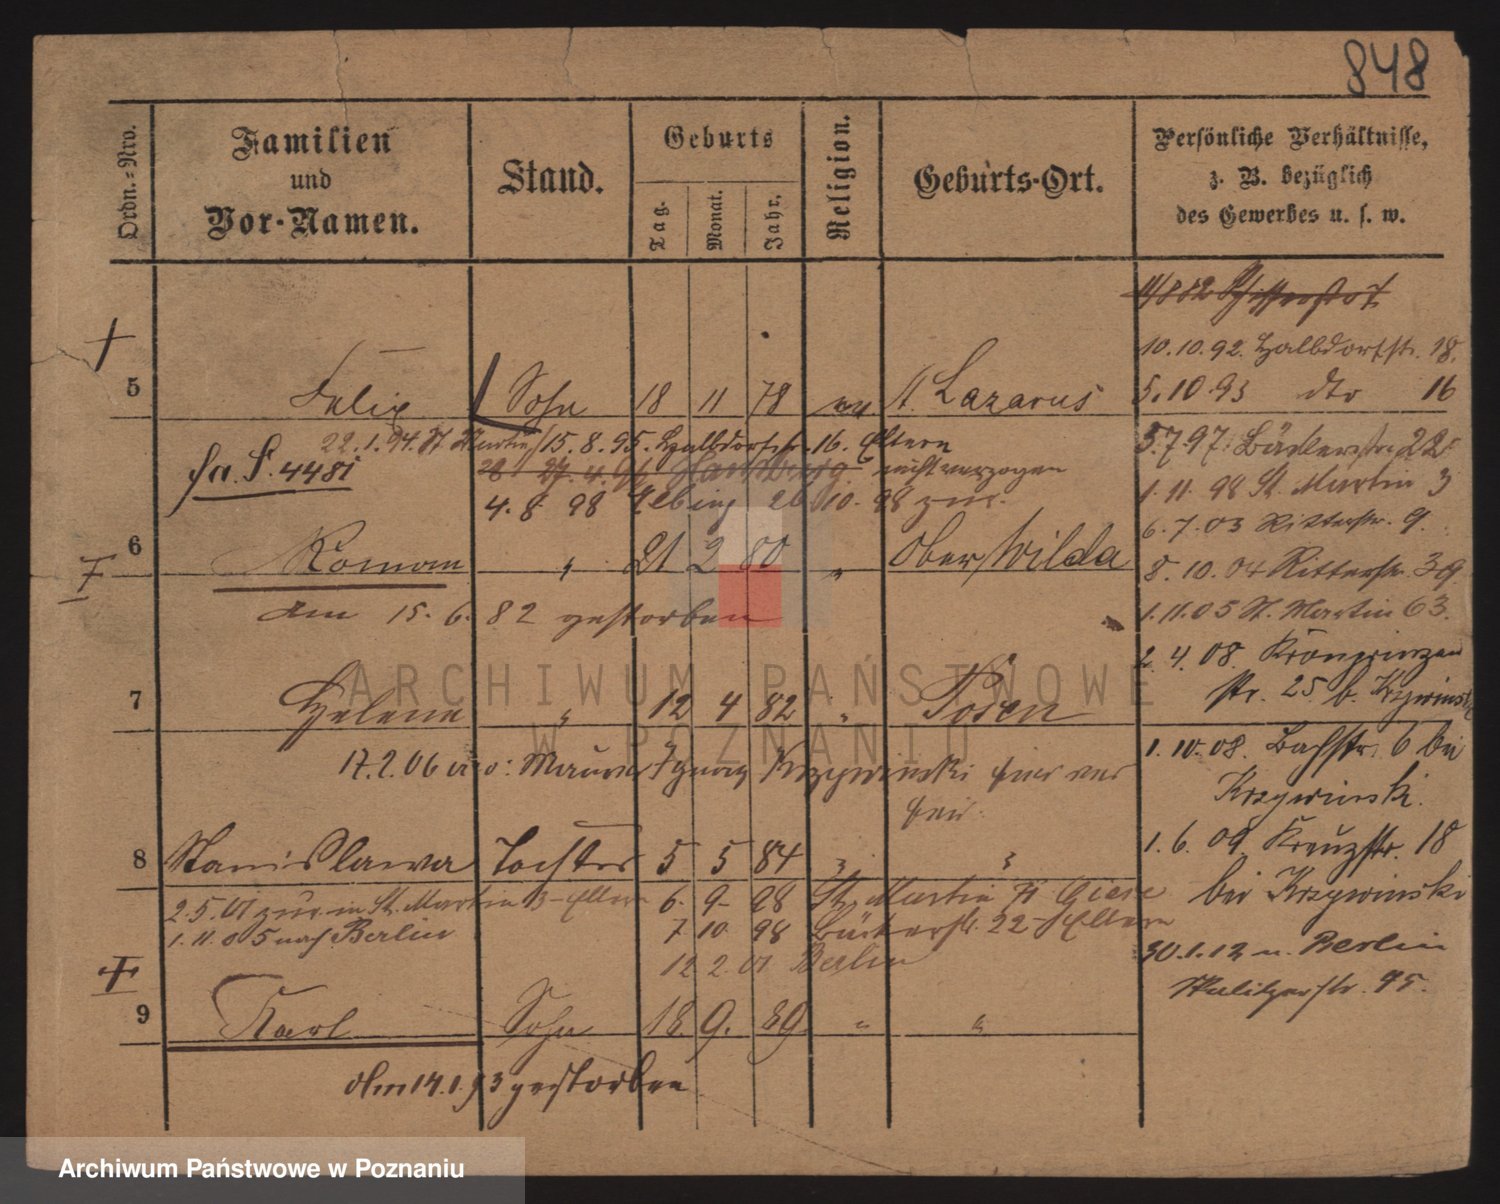 848
Ordn.-Nro.
Familien
und
Vor-Namen.
Stand.
Geburts
Tag.
Monat.
Jahr.
Religion.
Geburts-Ort.
Persönliche Verhältnisse,
z. B. bezüglich
des Gewerbes u. s. w.
10.10.92. Halbdorfstr. 18.
5.10.93 dto 16
5 Felix Sohn 18 11 78 ev St. Lazarus
22.1.94. St Martin 15.8.95. Halbdorfstr. 16. Eltern
fa. S. 4481 Hamburg nicht verzogen
4.8.98 Elbing 26 10. 98 zur.
6 Roman " 21 2 80 " Ober Wilda
am 15.6.82 gestorben
7 Helene " 12 4 82 " Posen
17.2.06 Maurer Ignaz Krzywinski
8 Stanislawa Tochter 5 5 84 " "
2.5.01 zur. in St. Martin 3 Eltern 6. 9. 98 St. Martin
1.11.05 nach Berlin 7 10 98 Bäckerstr. 22 Eltern
12 2. 01 Berlin
9 Karl Sohn 18. 9. 89 " "
Am 14.1.93 gestorben
5.7.97. Bäckerstr. 22
1.11.98 St. Martin 3
6.7.03 Ritterstr. 9.
8.10.04 Ritterstr. 39
1.11.05 St. Martin 63.
2.4.08. Kronprinzen
str. 25 b. Krzywinski
1.10.08. Bachstr. 6 bei
Krzywinski.
1.6.09 Kreuzstr. 18
bei Krzywinski
30.1.12 n. Berlin
Skalitzerstr. 95.
ARCHIWUM PAŃSTWOWE
W POZNANIU
Archiwum Państwowe w Poznaniu